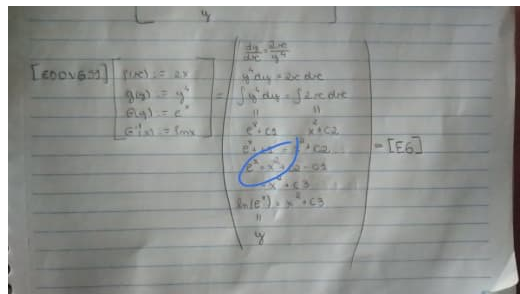 y
[EDOVSG] [f(x) := 2x
g(y) := y⁴
G(y) := eˣ
G⁻¹(x) := ln x] =
dy/dx = 2x/y⁴
y⁴dy = 2x dx
∫y⁴dy = ∫2x dx
= =
eˣ+C1 x²+C2
eˣ+C1 = x²+C2
eˣ = x²+C2-C1
= x²+C3
ln(eˣ) = x²+C3
=
y
= [E6]